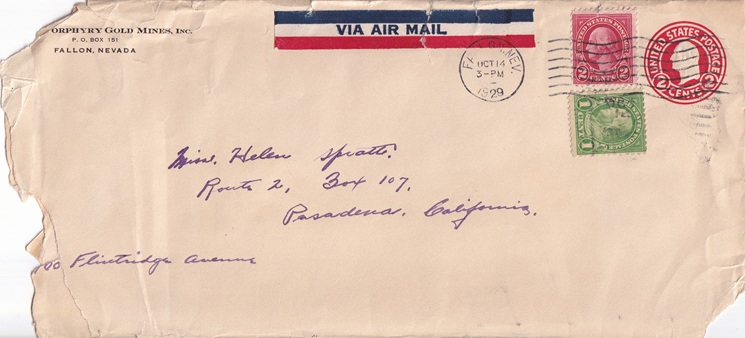 ORPHYRY GOLD MINES, INC.
P. O. BOX 151
FALLON, NEVADA
VIA AIR MAIL
NEV.
OCT 14
3-PM
1929
UNITED STATES POSTAGE
2 CENTS 2
UNITED STATES POSTAGE
2 CENTS 2
1 CENT 1
Miss. Helen Spratt.
Route 2, Box 107,
Pasadena. California.
Flintridge Avenue